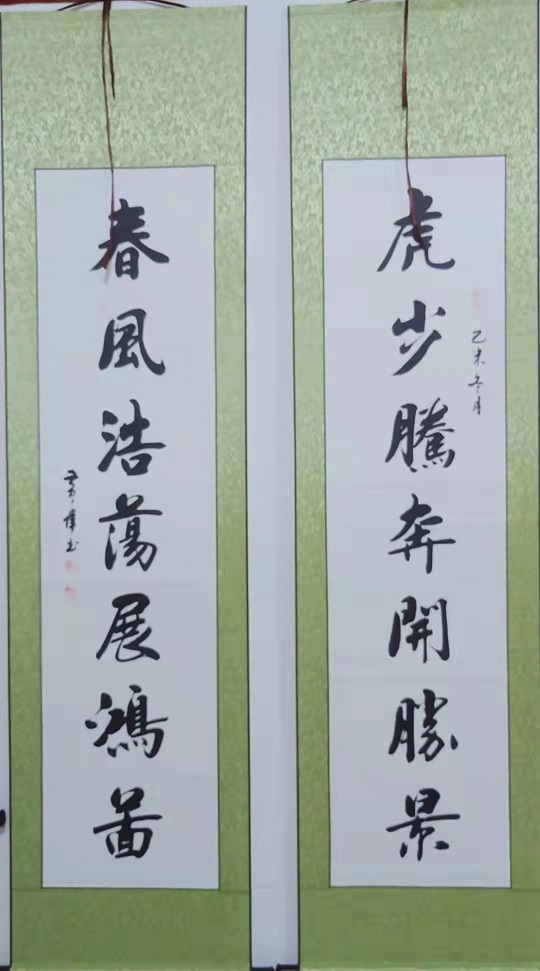 虎步騰奔開勝景
乙未冬月
春風浩蕩展鴻啚